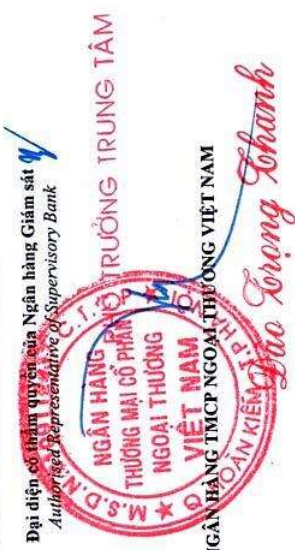 Đại diện có thẩm quyền của Ngân hàng Giám sát
Authorised Representative of Supervisory Bank
TRƯỞNG TRUNG TÂM
NGÂN HÀNG
THƯƠNG MẠI CỔ PHẦN
NGOẠI THƯƠNG
VIỆT NAM
M.S.D.N
C.T.C.P
HOÀN KIẾM T.PHỐ
NGÂN HÀNG TMCP NGOẠI THƯƠNG VIỆT NAM
Đào Trọng Khanh